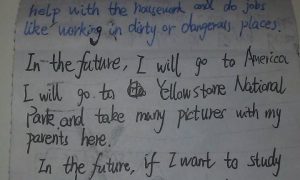 help with the housework and do jobs
like working in dirty or dangerous places.
In the future, I will go to America
I will go to Yellowstone National
Park and take many pictures with my
parents here.
In the future, if I want to study